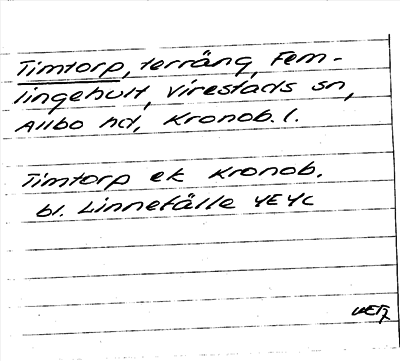 Timtorp, terräng, Fem-
lingehult, Virestads sn,
Allbo hd, Kronob. l.
Timtorp ek Kronob.
bl. Linnefälle 4E4c